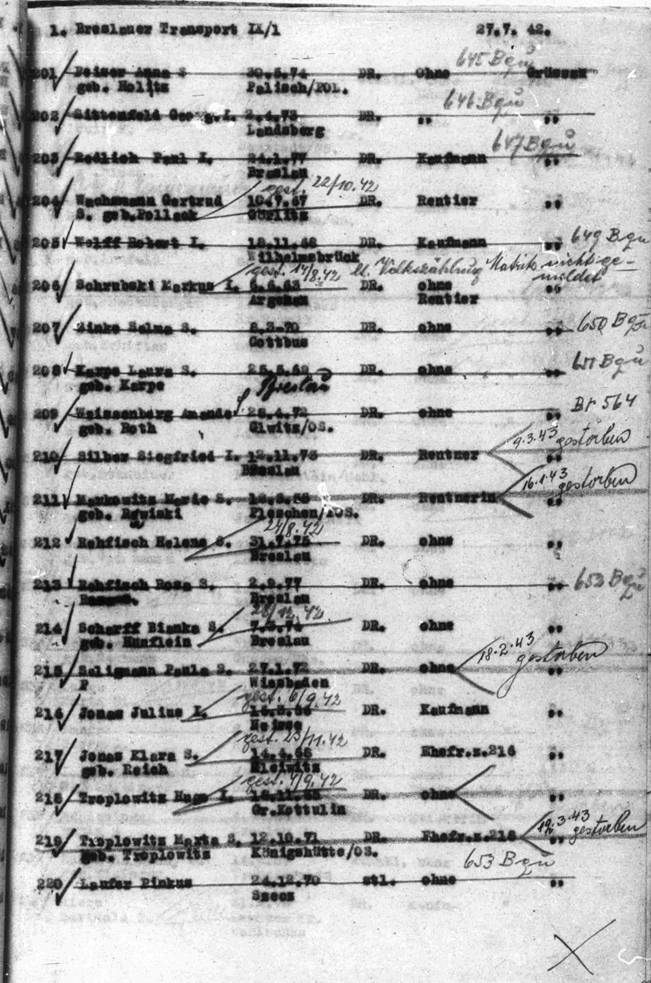 1. Breslauer Transport IX/1 27.7. 42.
645 Bqu
201 Peiser Anna S 30.5.74 DR. Ohne Grüssau
geb. Holitz Palisch/POL.
646 Bqu
202 Sittenfeld Georg.I. 2.4.73 DR. ,, ,,
Landsberg
647 Bqu
203 Redlich Paul I. 24.1.77 DR. Kaufmann ,,
Breslau
gest. 22/10.42
204 Wachsmann Gertrud DR. Rentier ,,
S. geb.Pollack Görlitz
205 Wolff Robert I. DR. Kaufmann ,, 649 Bqu
Wilhelmsbrück
gest. 14/8.42 lt. Volkszählung Matrik nicht gemeldet
206 Schrubski Markus I. 6.6.63 DR. ohne ,,
Argenau Rentier
207 Zinke Selma S. 8.3.70 DR. ohne ,, 650 Bqu
Cottbus
208 Karpe Laura S. DR. ohne ,, 651 Bqu
geb. Karpe Breslau
209 Weissenberg Amande S. 25.4.72 DR. ohne ,, Br 564
geb. Roth Glwitz/OS.
9.3.43 gestorben
210 Silber Siegfried I. 12.11.75 DR. Rentner ,,
Breslau
16.1.43 gestorben
211 Markowitz Marie S. DR. Rentnerin ,,
geb. Rawiski Pleschen/POS.
24/8.42
212 Rehfisch Helene S. 31.7.75 DR. ohne ,,
Breslau
213 Rehfisch Rosa S. 2.9.77 DR. ohne ,, 653 Bqu
Breslau
28/12.42
214 Scharff Bianka S. 7.3.74 DR. ohne ,,
geb. Hünflein Breslau
18.2.43 gestorben
215 Seligmann Paula S. 27.1.72 DR. ohne ,,
P Wiesbaden
gest. 6/9.42
216 Jonas Julius I. DR. Kaufmann ,,
Neisse
gest. 23/11.42
217 Jonas Klara S. 14.4.66 DR. Ehefr.z.216 ,,
geb. Reich Gleiwitz
gest. 4/9.42
218 Troplowitz Hugo I. DR. ohne ,,
Gr.Kottulin
19.3.43 gestorben
219 Troplowitz Marta S. 12.10.71 DR. Ehefr.z.218 ,,
geb. Troplowitz Königshütte/OS.
653 Bqu
220 Laufer Pinkus 24.12.70 stl. ohne ,,